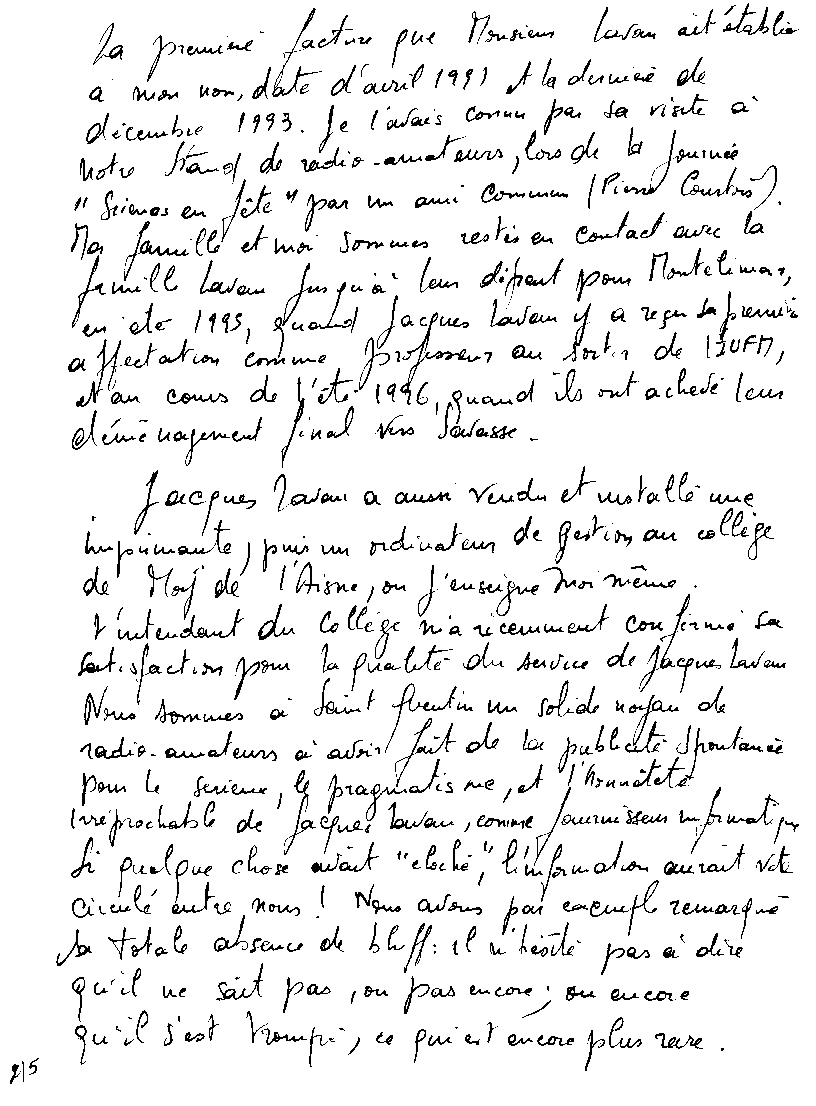 La première facture que Monsieur Lavau ait établie
à mon nom, date d'avril 1991 et la dernière de
décembre 1993. Je l'avais connu par sa visite à
notre stand de radio-amateurs, lors de la journée
"Sciences en fête" par un ami commun (Pierre Courbois).
Ma famille et moi sommes restés en contact avec la
famille Lavau jusqu'à leur départ pour Montelimar,
en été 1995, quand Jacques Lavau y a reçu sa première
affectation comme professeur au sortir de l'IUFM,
et au cours de l'été 1996, quand ils ont achevé leur
déménagement final vers Savasse.
Jacques Lavau a aussi vendu et installé une
imprimante, puis un ordinateur de gestion au collège
de Moÿ de l'Aisne, où j'enseigne moi même.
L'intendant du Collège m'a récemment confirmé sa
satisfaction pour la qualité du service de Jacques Lavau
Nous sommes à Saint Quentin un solide noyau de
radio-amateurs à avoir fait de la publicité spontanée
pour le sérieux, le pragmatisme, et l'honnêteté
irréprochable de Jacques Lavau, comme fournisseur informatique
Si quelque chose avait "cloché", l'information aurait vite
circulé entre nous ! Nous avons par exemple remarqué
sa totale absence de bluff : il n'hésite pas à dire
qu'il ne sait pas, ou pas encore ; ou encore
qu'il s'est trompé, ce qui est encore plus rare.
2/5